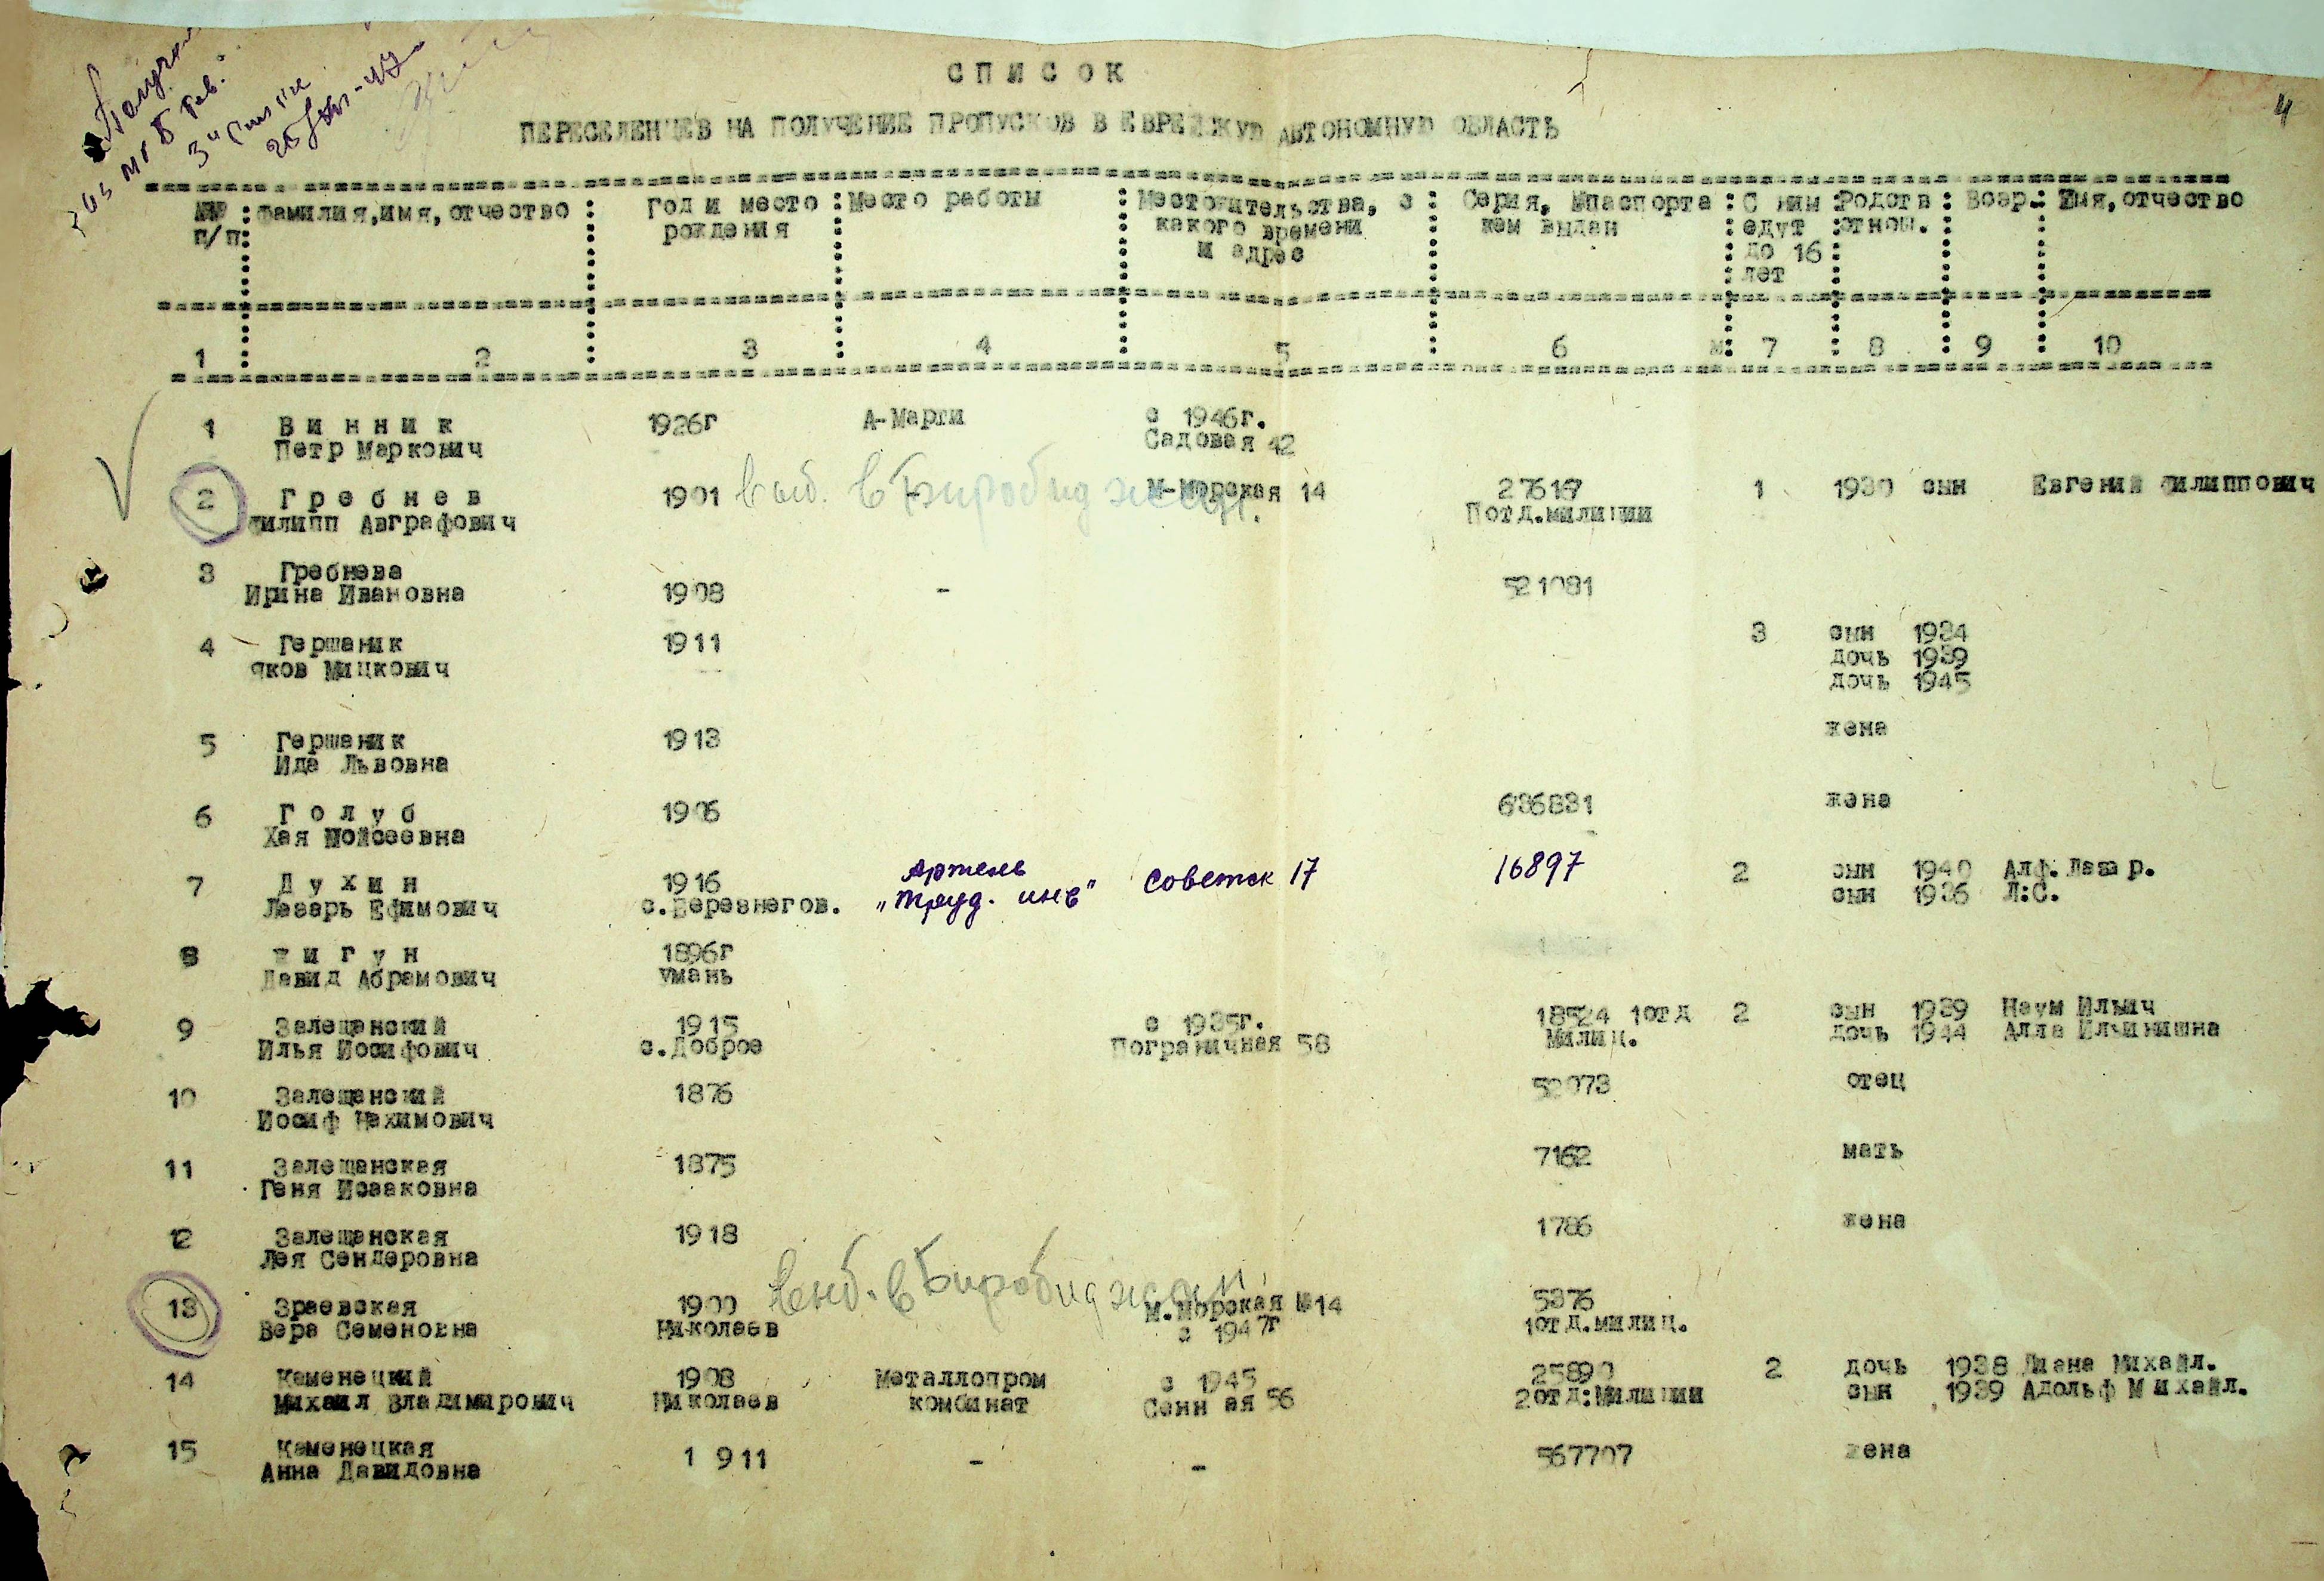 4
СПИСОК
ПЕРЕСЕЛЕНЦЕВ НА ПОЛУЧЕНИЕ ПРОПУСКОВ В ЕВРЕЙСКУЮ АВТОНОМНУЮ ОБЛАСТЬ
№№ п/п : Фамилия,имя,отчество : Год и место рождения : Место работы : Местожительства, с какого времени и адрес : Серия, №паспорта кем выдан : С ним едут до 16 лет : Родств отнош. : Возр. : Имя,отчество
1 : 2 : 3 : 4 : 5 : 6 : 7 : 8 : 9 : 10
1 Винник 1926г А-Марти с 1946г.
Петр Маркович Садовая 42
2 Гребнев 1901 выб. в Биробиджан. М-Морская 14 27616 1 1930 сын Евгений Филиппович
Филипп Авграфович Потд.милиции
3 Гребнева
Ирина Ивановна 1908 - 521081
4 Гершаник 1911 3 сын 1934
Яков Мицкович дочь 1939
дочь 1945
5 Гершаник 1913 жена
Ида Львовна
6 Голуб 1906 636831 жена
Хая Мойсеевна
7 Духин 1916 Артель Советск 17 16897 2 сын 1940 Алф. Лазар.
Лазарь Ефимович с.Березнегов. „Труд. инв" сын 1936 Л:С.
8 Жигун 1896г
Давид Абрамович Умань
9 Залещанский 1915 с 1935г. 18524 1отд 2 сын 1939 Наум Ильич
Илья Иосифович с.Доброе Пограничная 58 Милиц. дочь 1944 Алла Ильинишна
10 Залещанский 1876 52073 отец
Иосиф Нахимович
11 Залещанская 1875 7162 мать
Геня Исааковна
12 Залещанская 1918 1786 жена
Лея Сендеровна
13 Зраевская 1900 выб. в Биробиджан. М.Морская №14 5376
Вера Семеновна Николаев с 1947г 1отд.милиц.
14 Каменецкий 1908 Металлопром с 1945 25890 2 дочь 1938 Лиана Михайл.
Михаил Владимирович Николаев комбинат Сенная 56 2отд:Милиции сын 1939 Адольф Михайл.
15 Каменецкая 1911 - - 567707 жена
Анна Давидовна